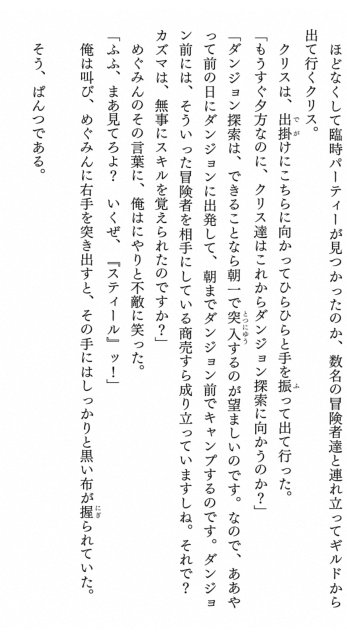 ほどなくして臨時パーティーが見つかったのか、数名の冒険者達と連れ立ってギルドから
出て行くクリス。
クリスは、出掛けにこちらに向かってひらひらと手を振って出て行った。
「もうすぐ夕方なのに、クリス達はこれからダンジョン探索に向かうのか?」
「ダンジョン探索は、できることなら朝一で突入するのが望ましいのです。なので、ああや
って前の日にダンジョンに出発して、朝までダンジョン前でキャンプするのです。ダンジョ
ン前には、そういった冒険者を相手にしている商売すら成り立っていますしね。それで?
カズマは、無事にスキルを覚えられたのですか?」
めぐみんのその言葉に、俺はにやりと不敵に笑った。
「ふふ、まあ見てろよ? いくぜ、『スティール』ッ!」
俺は叫び、めぐみんに右手を突き出すと、その手にはしっかりと黒い布が握られていた。
そう、ぱんつである。